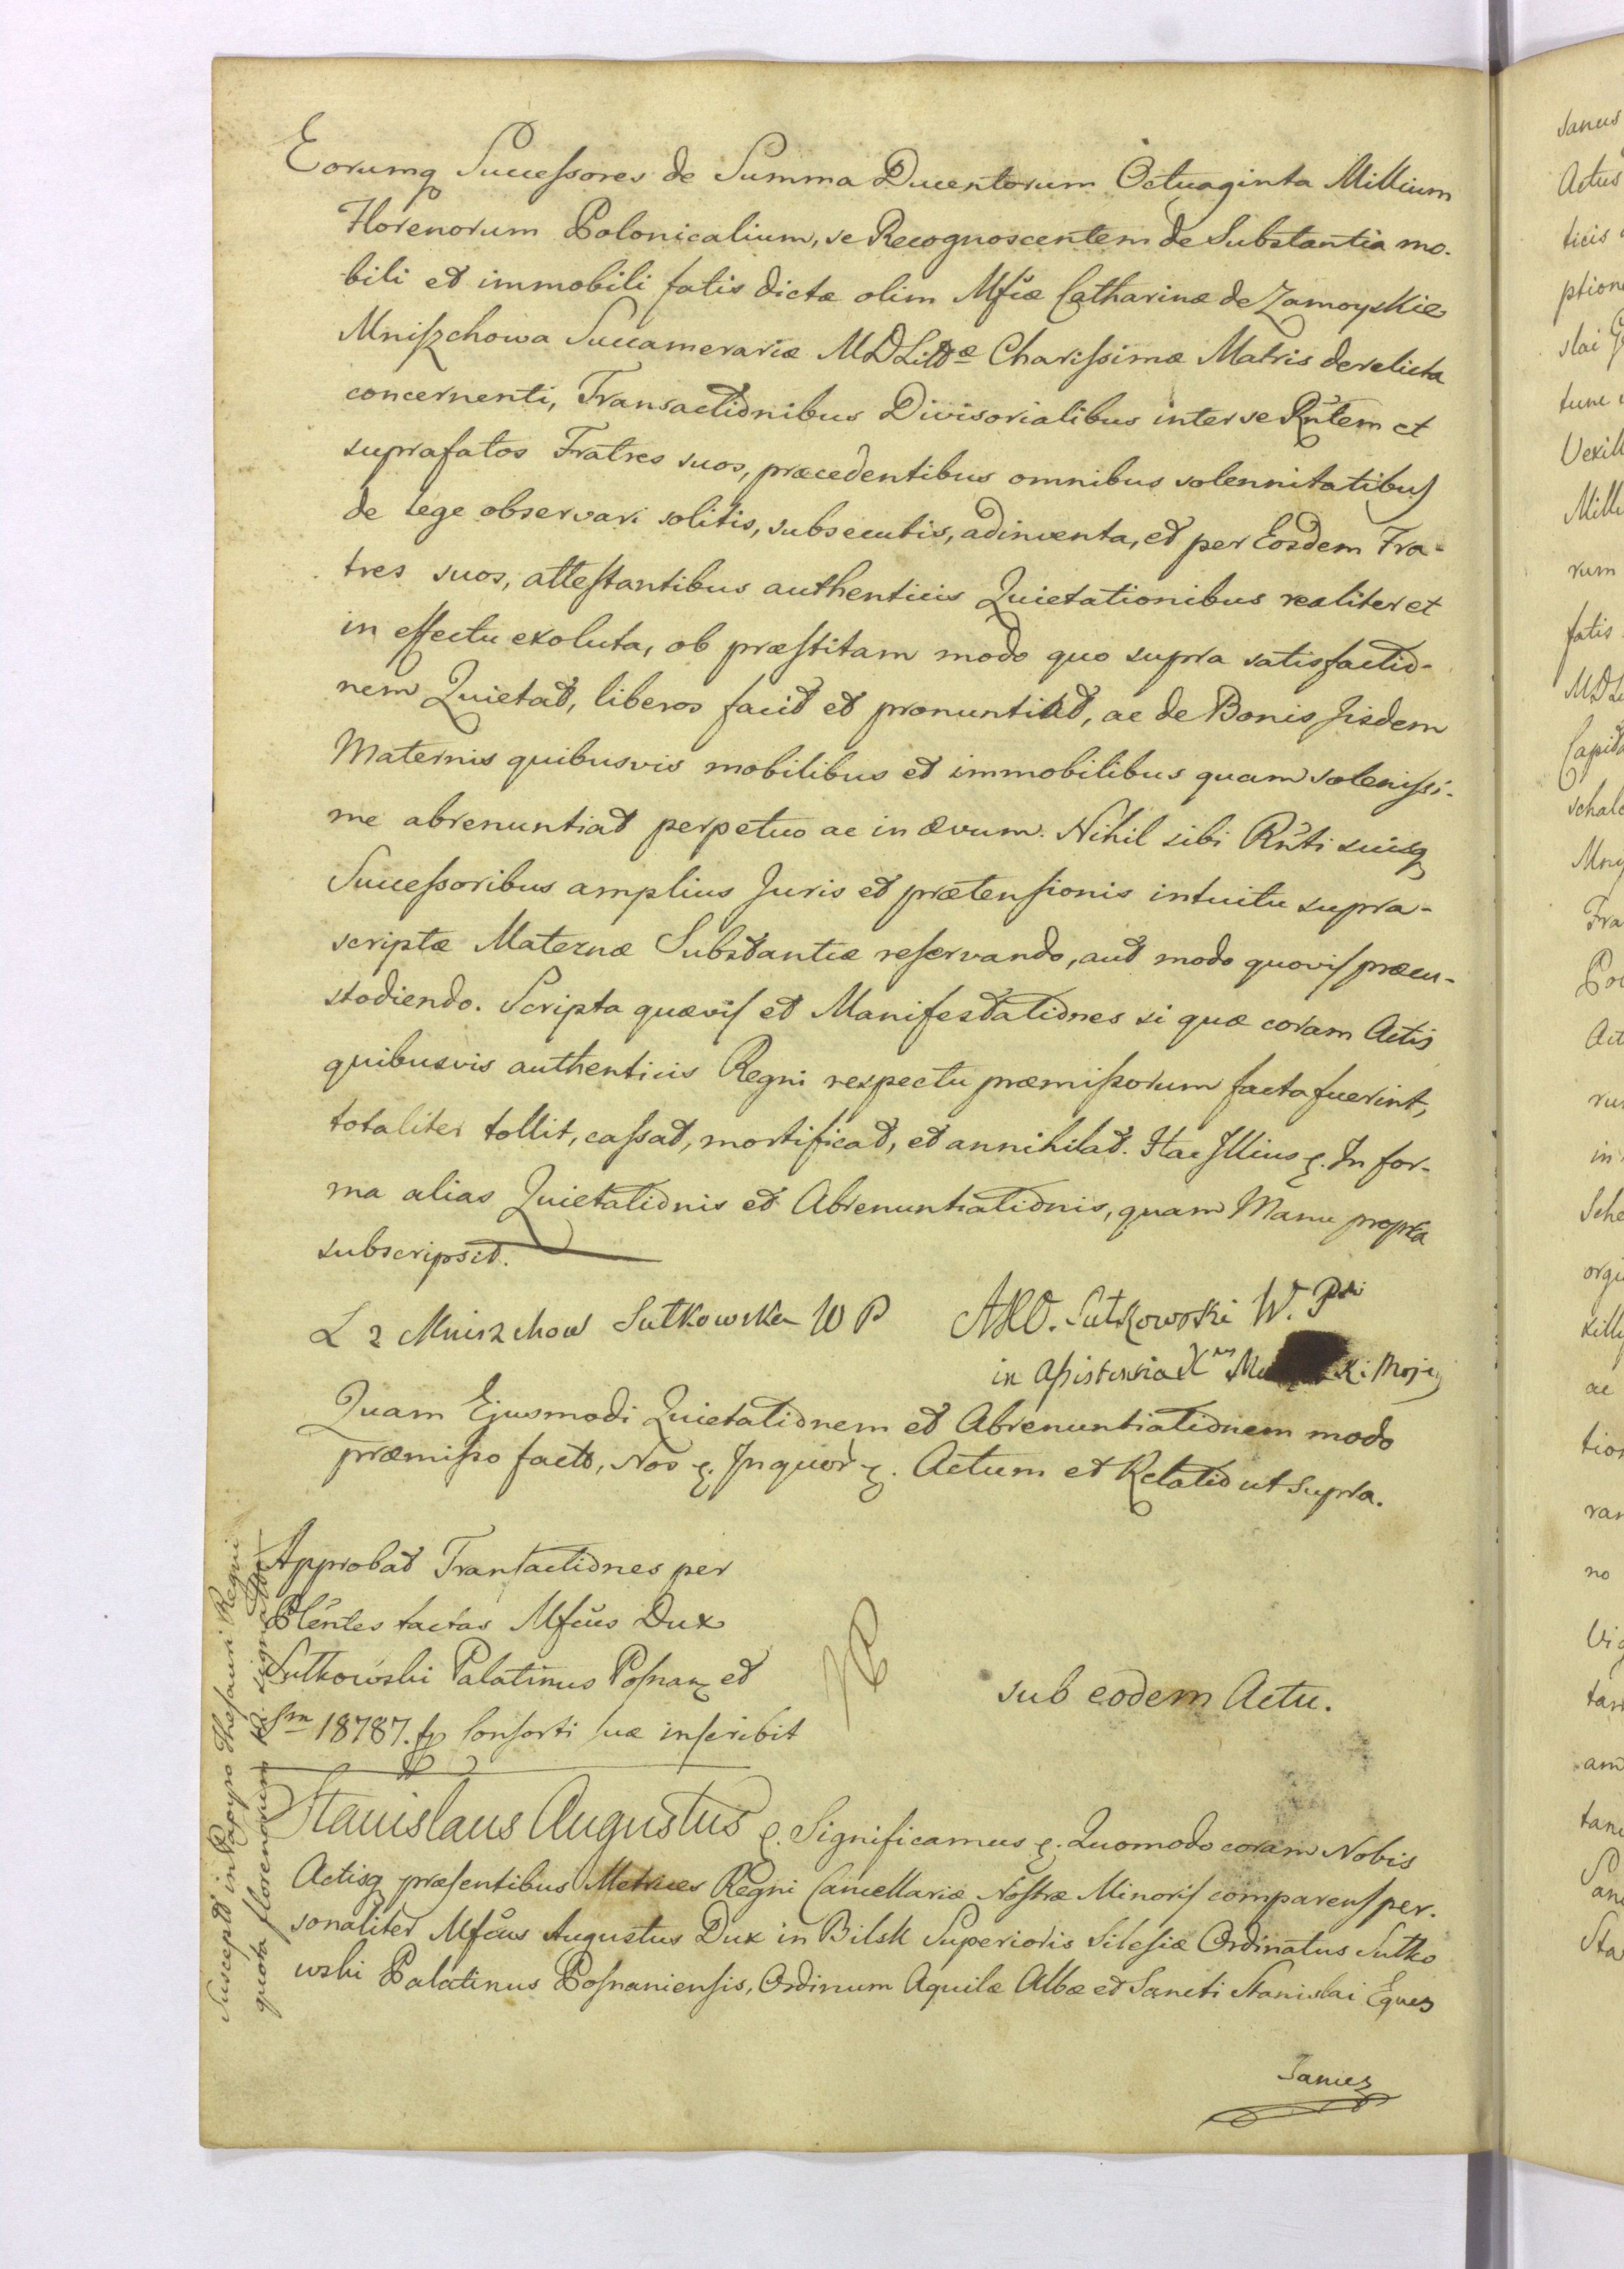 Eorumq Successores de Summa Ducentorum Octuaginta Millium
Florenorum Polonicalium, se Recognoscentem de Substantia mo-
bili et immobili fatis dictæ olim Mfcæ Catharinæ de Zamoyskie
Mniszchowa Succamerariæ MDLittæ Charissimæ Matris derelicta
concernenti, Transactionibus Divisorialibus inter se Rntem et
suprafatos Fratres suos, præcedentibus omnibus solennitatibus
de lege observari solitis, subsecutis, adinventa, et per Eosdem Fra-
tres suos, attestantibus authenticis Quietationibus realiter et
in effectu exoluta, ob præstitam modo quo supra satisfactio-
nem Quietat, liberos facit et pronuntiat, ac de Bonis Jisdem
Maternis quibusvis mobilibus et immobilibus quam solenissi-
me abrenuntiat perpetuo ac in ævum. Nihil sibi Rnti suisq
Successoribus amplius Juris et prætensionis intuitu supra-
scriptæ Maternæ Substantiæ reservando, aut modo quovis præcu-
stodiendo. Scripta quævis et Manifestationes si quæ coram Actis
quibusvis authenticis Regni respectu præmissorum facta fuerint,
totaliter tollit, cassat, mortificat, et annihilat. Hac Illius &. In for-
ma alias Quietationis et Abrenuntiationis, quam Manu propria
subscripsit.
L z Mniszchow Sutkowska W P
A. Sutkowski W. P
in assistensia
Quam Ejusmodi Quietationem et Abrenuntiationem modo
præmisso facto, Nos &. Inquor &. Actum et Relatio ut supra.
Approbat Transactiones per
Plentes factas Mfcus Dux
Sutkowski Palatinus Posnan et
Sm 18787. fp Consorti suæ inscribit
sub eodem Actu.
Stanislaus Augustus &. Significamus &. Quomodo coram Nobis
Actisq præsentibus Metrices Regni Cancellariæ Nostræ Minoris comparens per-
sonaliter Mfcus Augustus Dux in Bilsk Superioris Silesiæ Ordinatus Sutko
wski Palatinus Posnaniensis, Ordinum Aquilæ Albæ et Sancti Stanislai Eques
Suscept in Papyro Thesauri Regni
quota florenorum